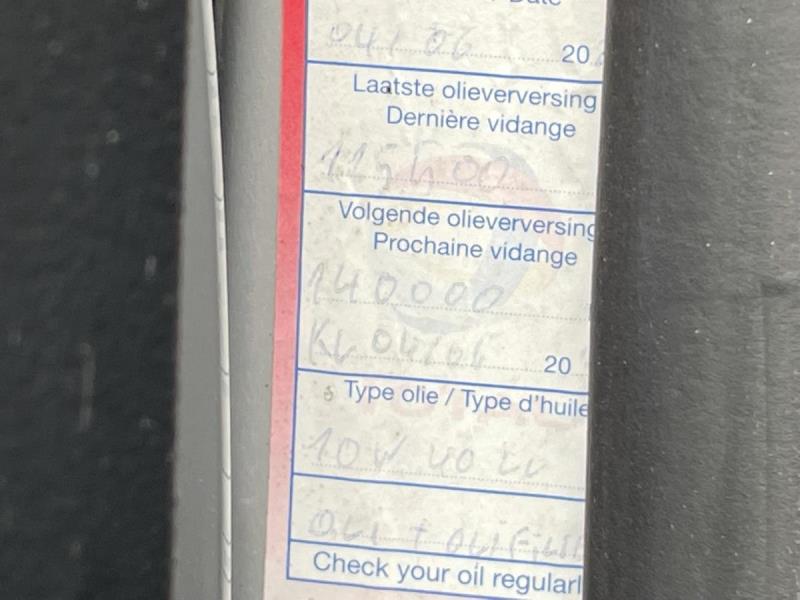 04/06 20
Laatste olieverversing
Dernière vidange
115500
Volgende olieverversing
Prochaine vidange
140000
20
Type olie / Type d'huile
10W40
OLI +
Check your oil regularl